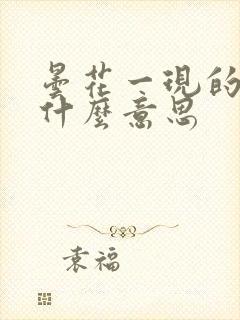 曇花一現的
什麼意思
袁福